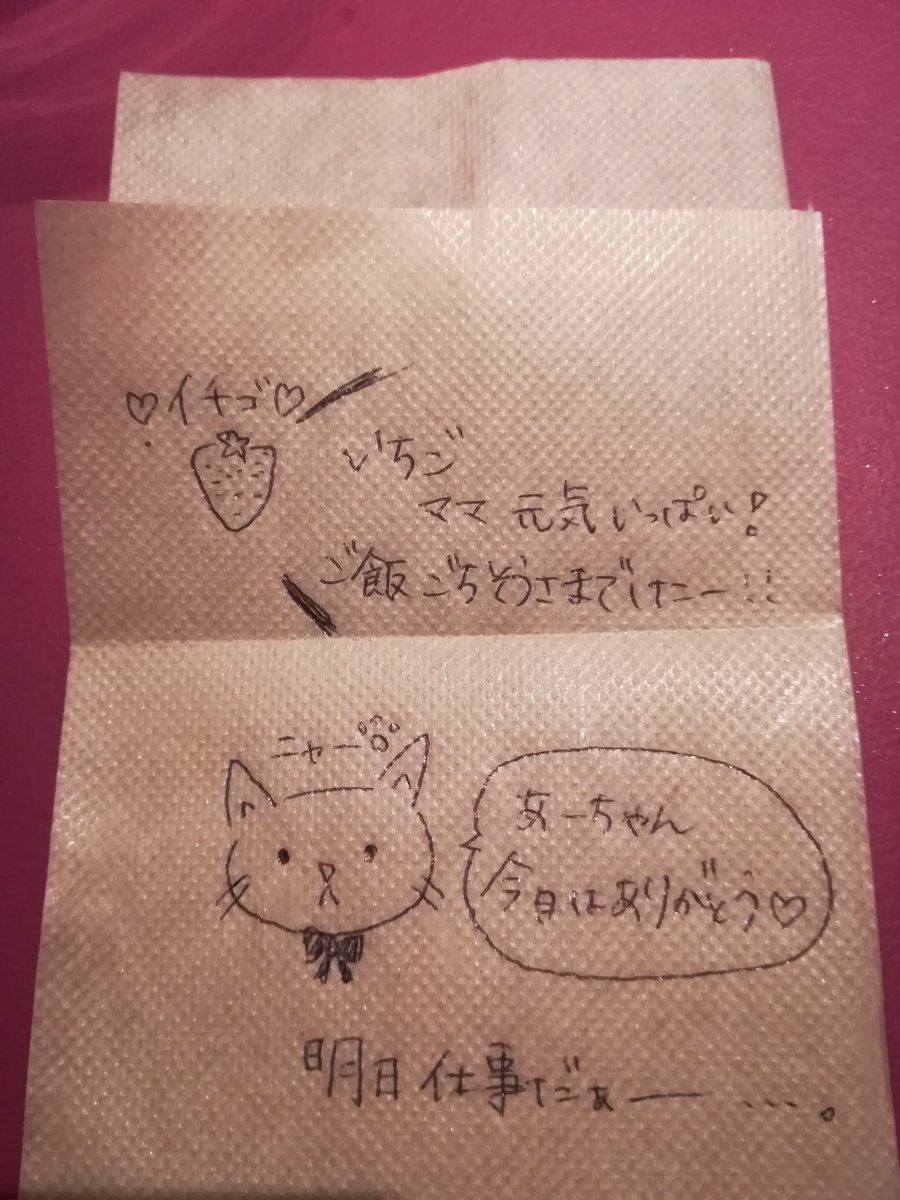 ♡イチゴ♡
いちご
ママ 元気いっぱい!
ご飯ごちそうさまでしたー!!
ニャー
あーちゃん
今日はありがとう♡
明日仕事だぁー ….。